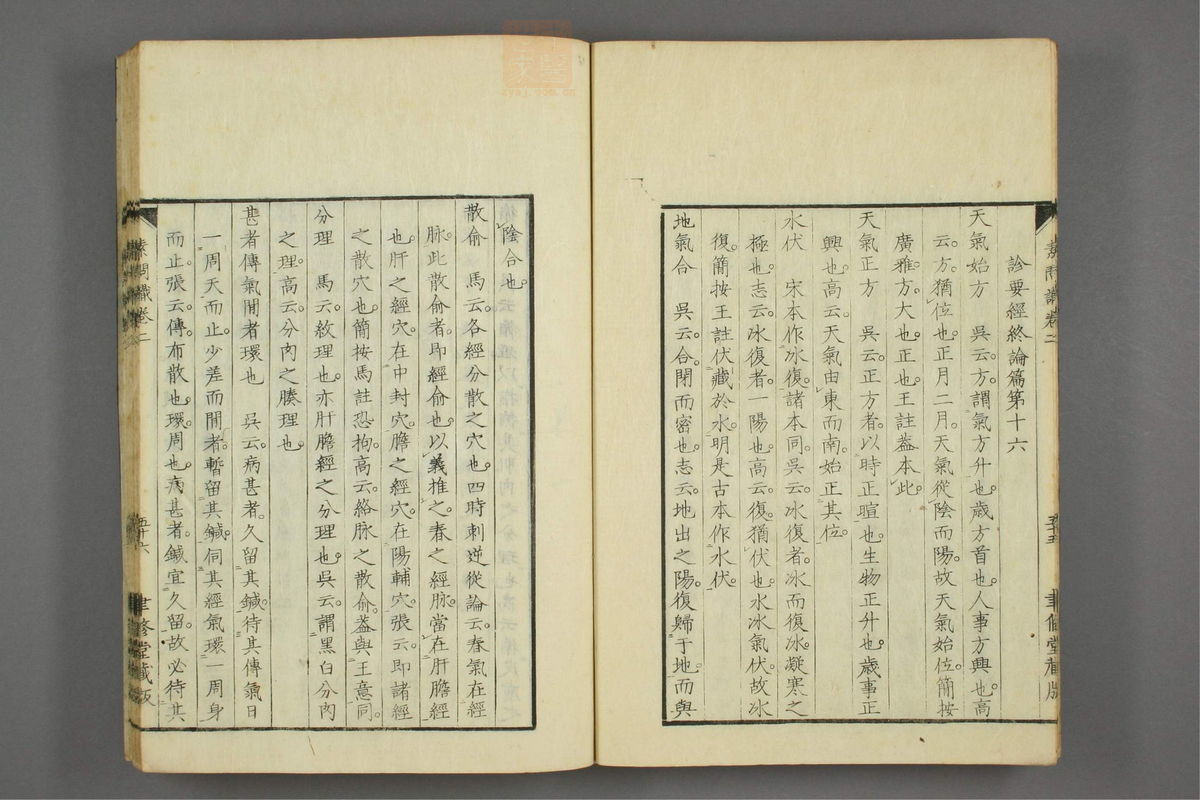 診要經終論篇第十六
天氣始方　吳云。方。謂氣方升也。歲方首也。人事方興也。高
云。方。猶位也。正月二月。天氣從陰而陽。故天氣始位。簡按
廣雅。方。大也。正也。王註蓋本此。
天氣正方　吳云。正方者。以時正暄也。生物正升也。歲事正
興也。高云。天氣由東而南。始正其位。
水伏　宋本作冰復。諸本同。吳云。冰復者。冰而復冰。凝寒之
極也。志云。冰復者。一陽也。高云。復。猶伏也。水冰氣伏。故冰
復。簡按王註伏藏於水。明是古本作水伏。
地氣合　吳云。合。閉而密也。志云。地出之陽。復歸于地。而與
素問識卷二
五十五
聿修堂藏版
陰合也。
散俞　馬云。各經分散之穴也。四時刺逆從論云。春氣在經
脉。此散俞者。即經俞也。以義推之。春之經脉。當在肝膽經
也。肝之經穴。在中封穴。膽之經穴。在陽輔穴。張云。即諸經
之散穴也。簡按馬註恐拘。高云。絡脉之散俞。蓋與王意同。
分理　馬云。紋理也。亦肝膽經之分理也。吳云。謂黑白分肉
之理。高云。分肉之腠理也
甚者傳氣閒者環也　吳云。病甚者。久留其鍼。待其傳氣日
一周天而止。少差而閒者。暫留其鍼。伺其經氣環一周身
而止。張云。傳。布散也。環。周也。病甚者。鍼宜久留。故必待其
素問識卷二
五十六
聿修堂藏版